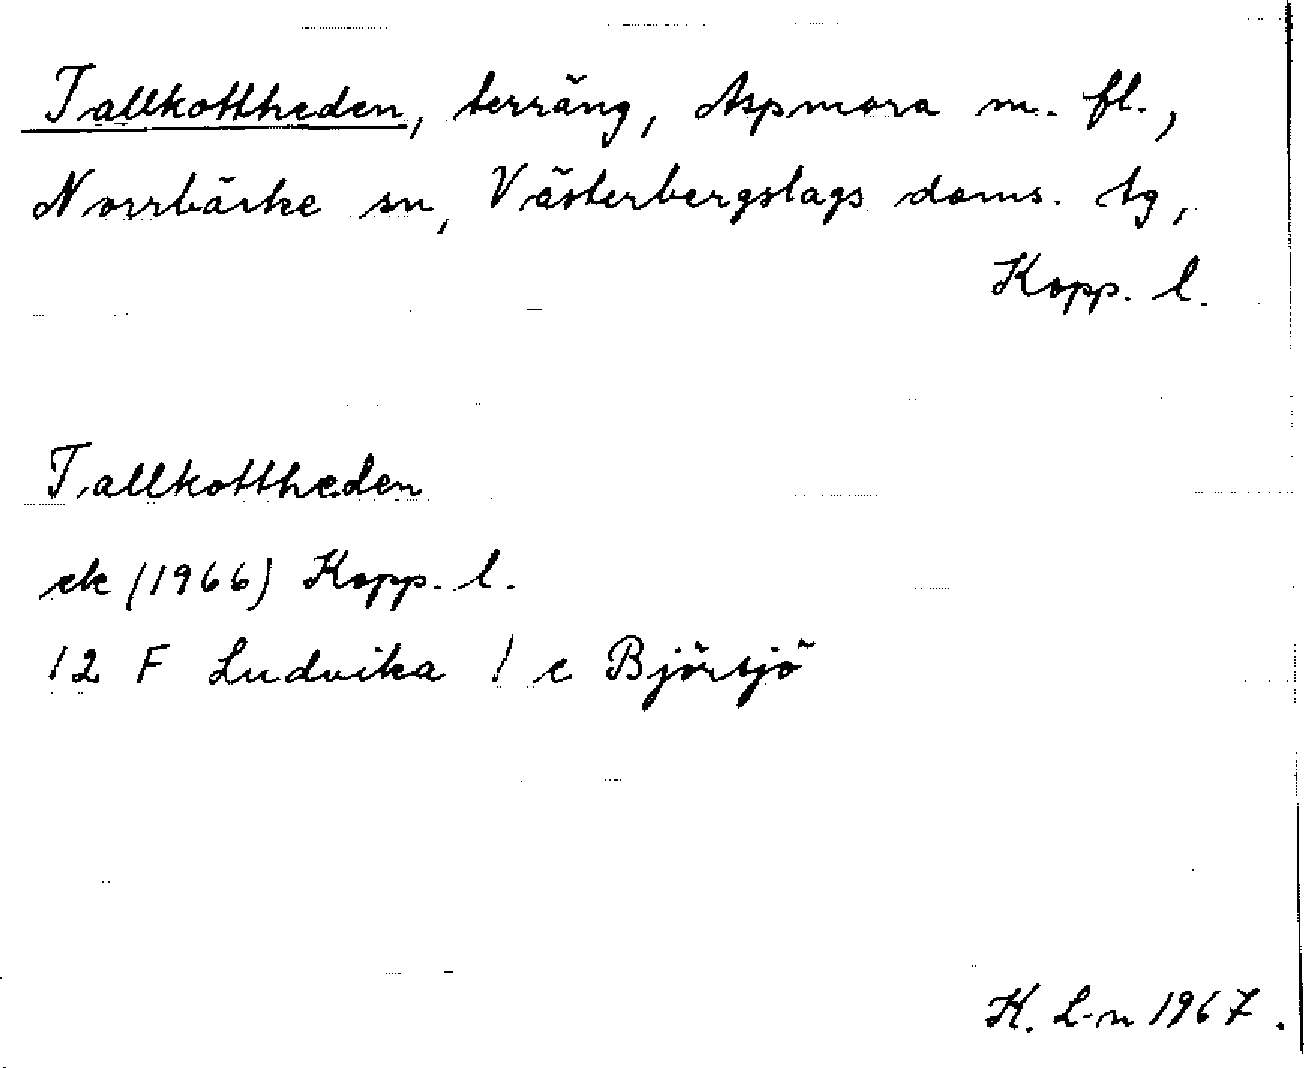 Tallkottheden, terräng, Aspmora m. fl.,
Norrbärke sn, Västerbergslags doms. tg,
Kopp. l.
Tallkottheden
ek (1966) Kopp. l.
12 F Ludvika / c Björsjö
K. L-n 1967.